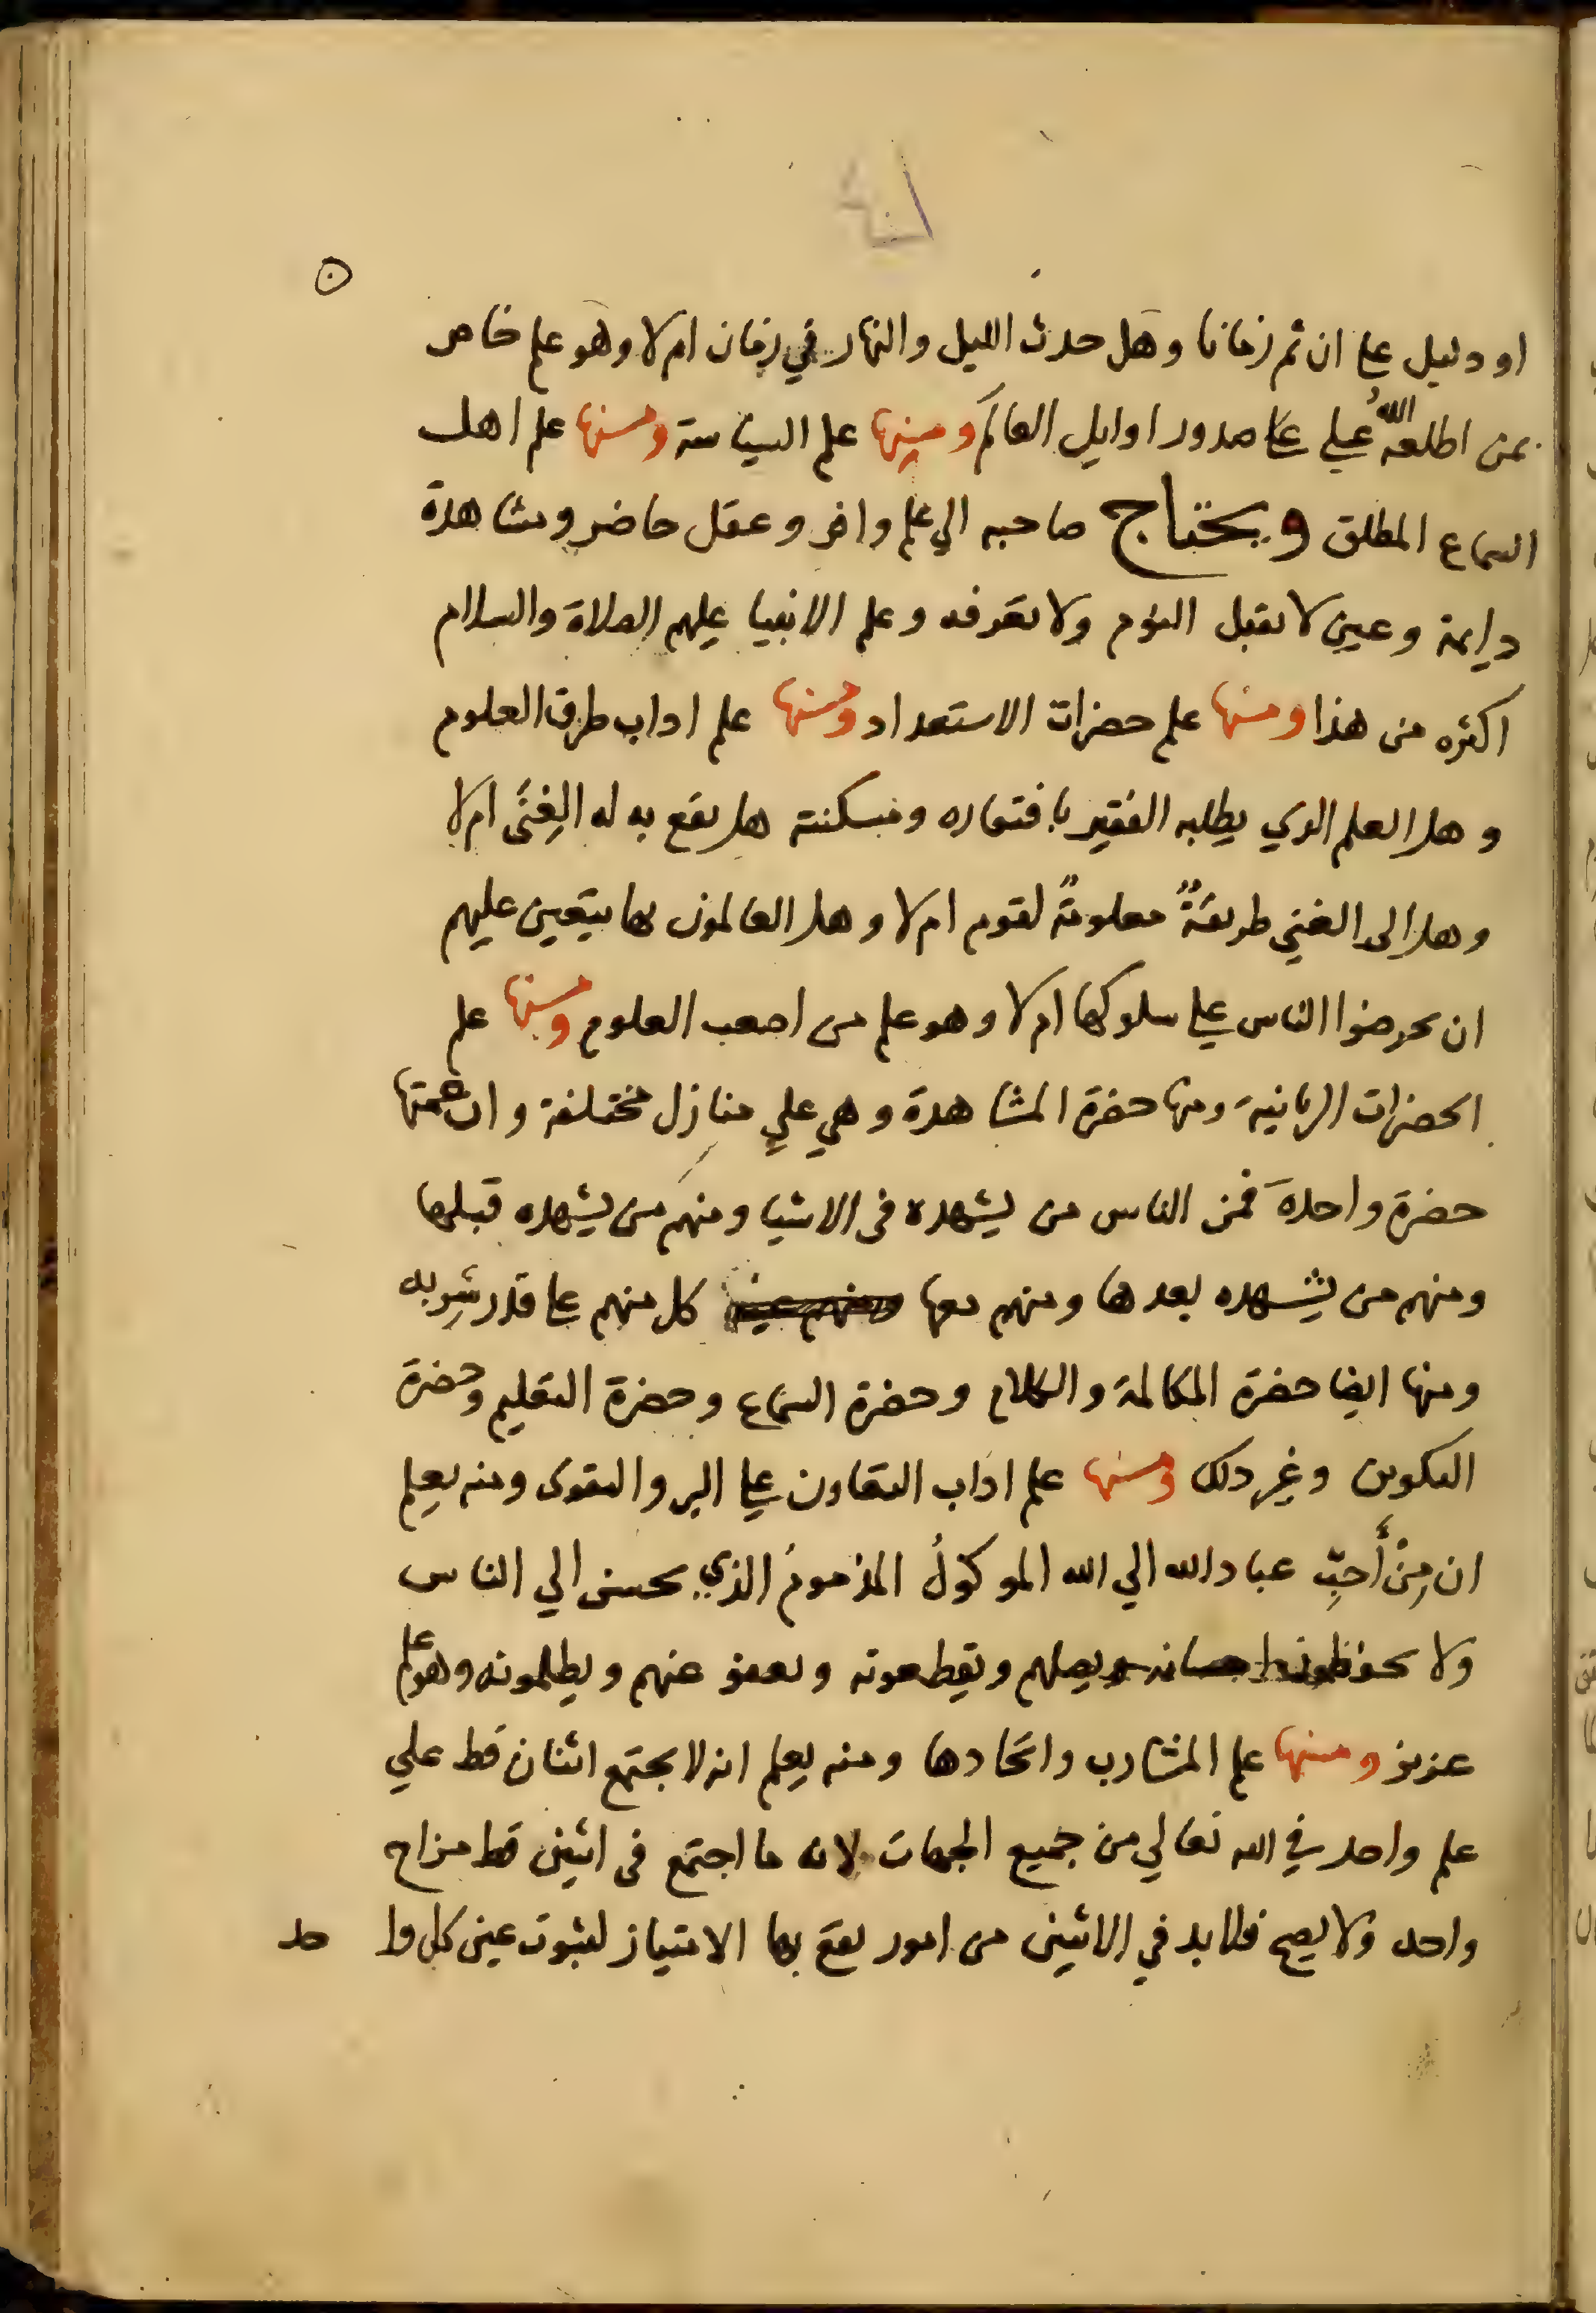 او دليل على ان ثم زمانا وهل حدث الليل والنهار في زمان ام لا وهو علم خاص
بمن اطلعه الله علي على صدور اوايل العالم ومنها علم السياسة ومنها علم اهل
السماع المطلق ويحتاج صاحبه الي علم وافر وعقل حاضر ومشاهدة
دايمة وعين لا تقبل النوم ولا تعرفه وعلم الانبيا عليهم الصلاة والسلام
اكثره من هذا ومنها علم حضرات الاستعداد ومنها علم اداب طرق العلوم
وهل العلم الذي يطلبه الفقير بافتقاره ومسكنته هل يقع به له الغِنَى ام لا
وهل الى الغني طريقةٌ معلومةٌ لقوم ام لا وهل العالمون بها يتعين عليهم
ان يحرضوا الناس علي سلوكها ام لا وهو علم من اصعب العلوم ومنها علم
الحضرات الربانية ومنها حضرة المشاهدة وهي علي منازل مختلفة وان عمتها
حضرة واحدة فمن الناس من يشهده في الاشيا ومنهم من يشهده قبلها
ومنهم من يشهده بعدها ومنهم معها كل منهم على قدر شربه
ومنها ايضا حضرة المكالمة والكلام وحضرة السماع وحضرة التعليم وحضرة
التكوين وغير ذلك ومنها علم اداب التعاون علي البر والتقوى ومنه يعلم
ان مِنْ أَحبِّ عباد الله الي الله الموكولُ المذمومُ الذي يحسن الي الناس
ولا يحفظون احسانه ويصلهم ويقطعونه ويعفو عنهم ويظلمونه وهو علم
عزيز ومنها علم المشارب واتحادها ومنه يعلم انه لا يجتمع اثنان قط علي
علم واحد في الله تعالي من جميع الجهات لانه ما اجتمع في اثنين قط مزاج
واحد ولا يصح فلا بد في الاثنين من امور يقع بها الامتياز لثبوت عين كل واحد